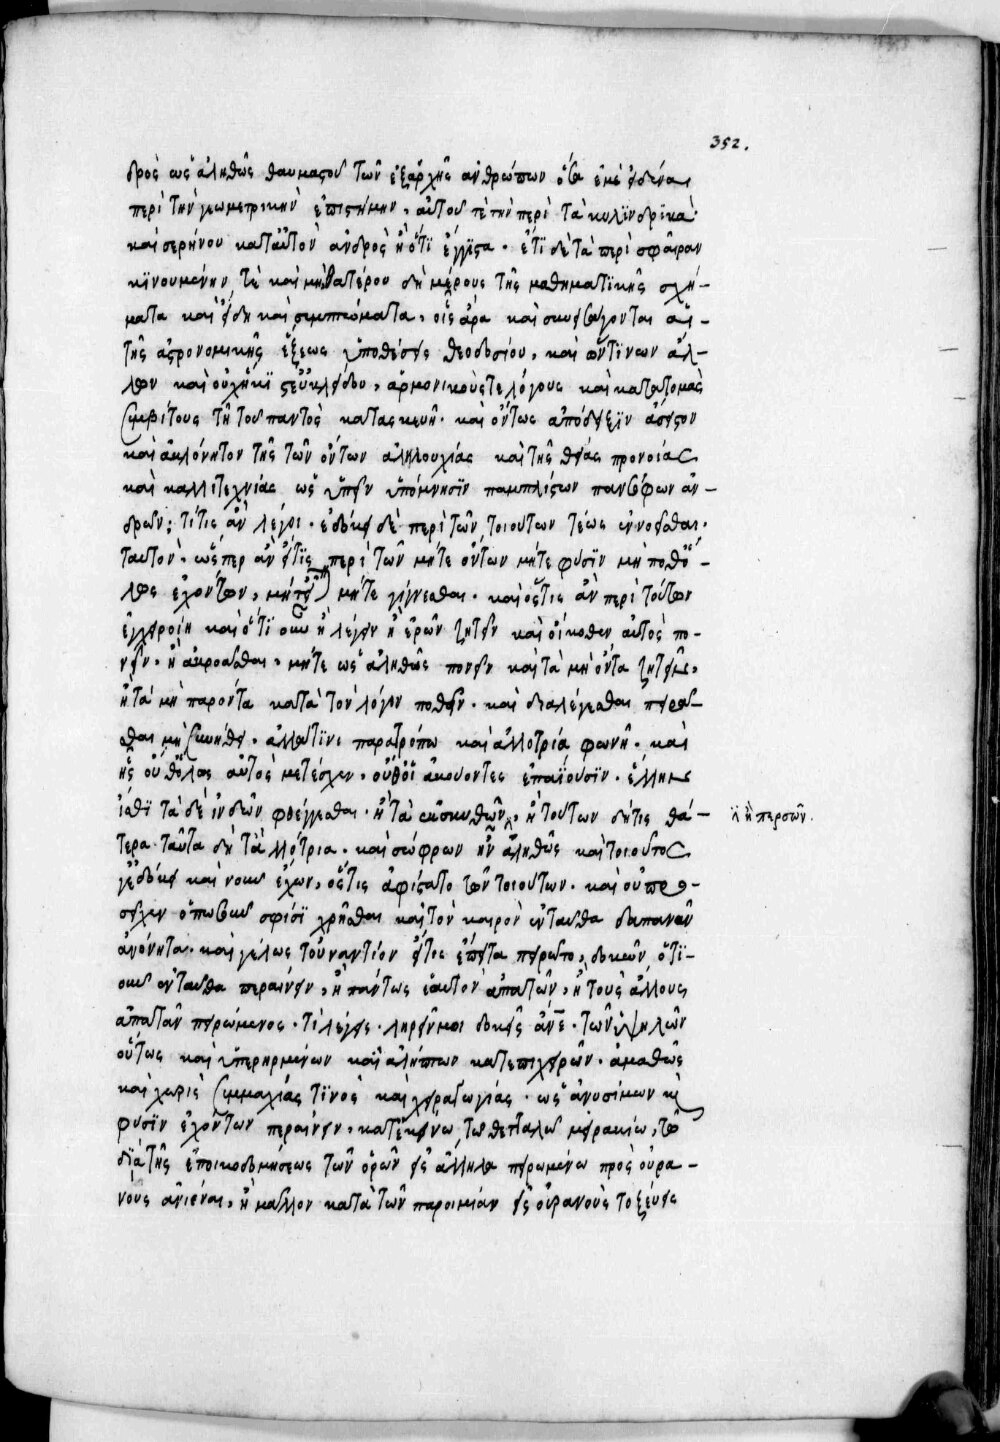 352.
δρὸς ὡς ἀληθῶς θαυμαστοῦ τῶν ἐξαρχῆς ἀνθρώπων ὅσα ἐμὲ εἰδέναι
περὶ τὴν γεωμετρικὴν ἐπιστήμην, αὐτοῦ τὲ τὴν περὶ τὰ κυλϊνδρϊκὰ
καὶ σερήνου κατ' αὐτὸν ἀνδρὸς ἢ ὅτϊ ἔγγϊστα. ἔτϊ δὲ τὰ περὶ σφαῖραν
κϊνουμένην τὲ καὶ μὴ θατέρου δὴ μέρους τῆς μαθηματϊκῆς σχή-
ματα καὶ εἴδη καὶ συμπτώματα, οἷς ἄρα καὶ σκυταγονται αἱ -
τῆς ἀστρονομικῆς ἕξεως ὑποθέσεις θεοδοσίου, καὶ ὧντϊνων ἄλ-
λων καὶ οὐχήκϊστ' εὐκλείδου, ἁρμονικούς τε λόγους καὶ κατατομὰς
συμβίτους τῇ τοῦ παντὸς κατασκευῇ. καὶ οὕτως ἀπόδειξϊν ἄσειστον
καὶ ἀκλόνητον τῆς τῶν ὄντων ἀλληλουχίας καὶ τῆς θείας προνοίας
καὶ καλλιτεχνίας ὡς εἰπεῖν ὑπόμνησϊν παμπλείστων πανσόφων ἀν-
δρῶν; τί τις ἂν λέγοι. ἐδόκει δὲ περὶ τῶν τοιούτων τέως ἐννοεῖσθαι.
ταυτὸν. ὥσπερ ἂν εἴτϊς περὶ τῶν μήτε ὄντων μήτε φύσϊν μὴ ποθ' ὅ-
λως ἐχόντων, μήτ' μήτε γίγνεσθαι. καὶ ὅστις ἂν περὶ τούτων
ἐγχειροίη καὶ ὅτϊ οὖν ἢ λέγειν ἢ ἐρῶν ζητεῖν καὶ οἴκοθεν αὐτὸς πο-
νεῖν, ἢ ἀκροᾶσθαι, μήτε ὡς ἀληθῶς πονεῖν καὶ τὰ μὴ ὄντα ζητεῖν,
ἢ τὰ μὴ παρόντα κατὰ τὸν λόγον ποθεῖν. καὶ διαλέγεσθαι πειρᾶ-
σθαι μὴ συνήθει. ἀλλά τϊνι παρατρόπω καὶ ἀλλοτρία φωνῇ. καὶ
ἧς οὐθ' ὅλως αὐτὸς μετέσχεν. οὔθ' οἱ ἀκούοντες ἐπαΐουσϊν. ἕλλησι
ἴσθϊ τὰ δὲ ἰνδῶν φθέγγεσθαι. ἢ τὰ σκυθῶν, ἢ τούτων δήτις θά-
ἢ περσῶν.
τερα. ταῦτα δὴ τἀλλότρια. καὶ σώφρων ἦν ἀληθῶς καὶ τοιοῦτος
γ' ἐδόκει καὶ νοῦν ἔχων, ὅστις ἀφίστατο τῶν τοιούτων. καὶ οὐ προ-
σεῖχεν ὅπωσοῦν σφίσϊ χρῆσθαι καὶ τὸν καιρὸν ἐνταῦθα δαπανᾶν
ἀνόνητα. καὶ γέλως τοὐναντίον εἴτις ἔπειτα πειρῶτο, δοκῶν ὅτϊ-
οῦν ἐνταῦθα περαίνειν, ἢ πάντως ἑαυτὸν ἀπατῶν, ἢ τοὺς ἄλλους
ἀπατᾶν πειρώμενος. τί λέγεις. ληρεῖν μοι δοκεῖς ἄνε. τῶν ὑψηλῶν
οὕτως καὶ ὑπερηρμένων καὶ ἀλήπτων κατεπιχειρῶν. ἀμαθῶς
καὶ χωρὶς συμμαχίας τϊνὸς καὶ χειραγωγίας. ὡς ἀνυσίμων καὶ
φύσϊν ἐχόντων περαίνειν, κατ' ἐκείνω τῶ θετταλῶ μειρακίω, τῶ
διὰ τῆς ἐποικοδομήσεως τῶν ὀρῶν εἰς ἄλληλα πειρωμένω πρὸς οὐρα-
νοὺς ἀνιέναι, ἢ μᾶλλον κατὰ τὴν παροιμίαν εἰς οὐρανοὺς τοξεύεις